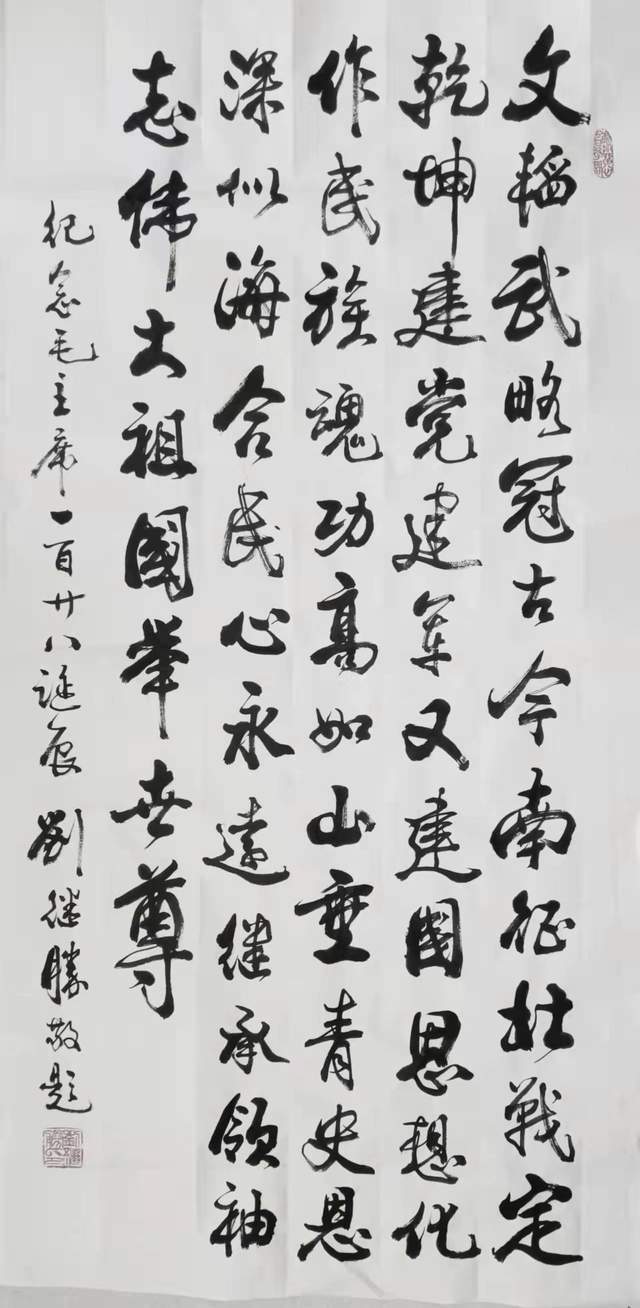 文韬武略冠古今南征北戰定
乾坤建党建军又建國思想化
作民族魂功高如山垂青史恩
深似海合民心永遠继承领袖
志伟大祖國举世尊
纪念毛主席一百廿八诞辰 劉继勝敬题